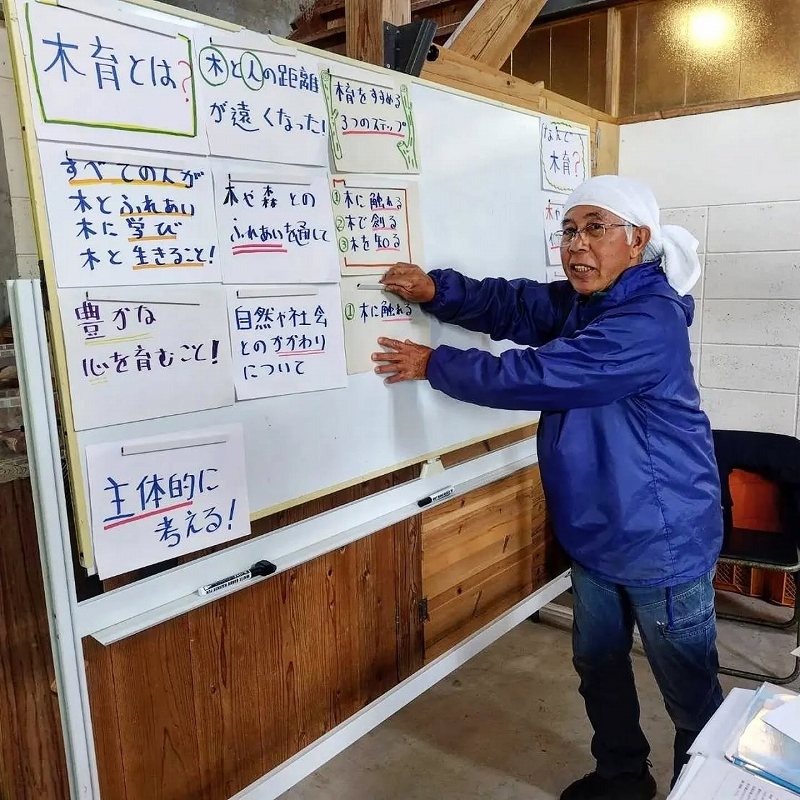 木育とは?
すべての人が
木とふれあい
木に学び
木と生きること!
豊かな
心を育むこと!
主体的に
考える!
木と人の距離
が遠くなった!
木や森との
ふれあいを通して
自然や社会
とのかかわり
について
木育をすすめる
3つのステップ
①木に触れる
②木で創る
③木を知る
①木に触れる
なんで
木育?